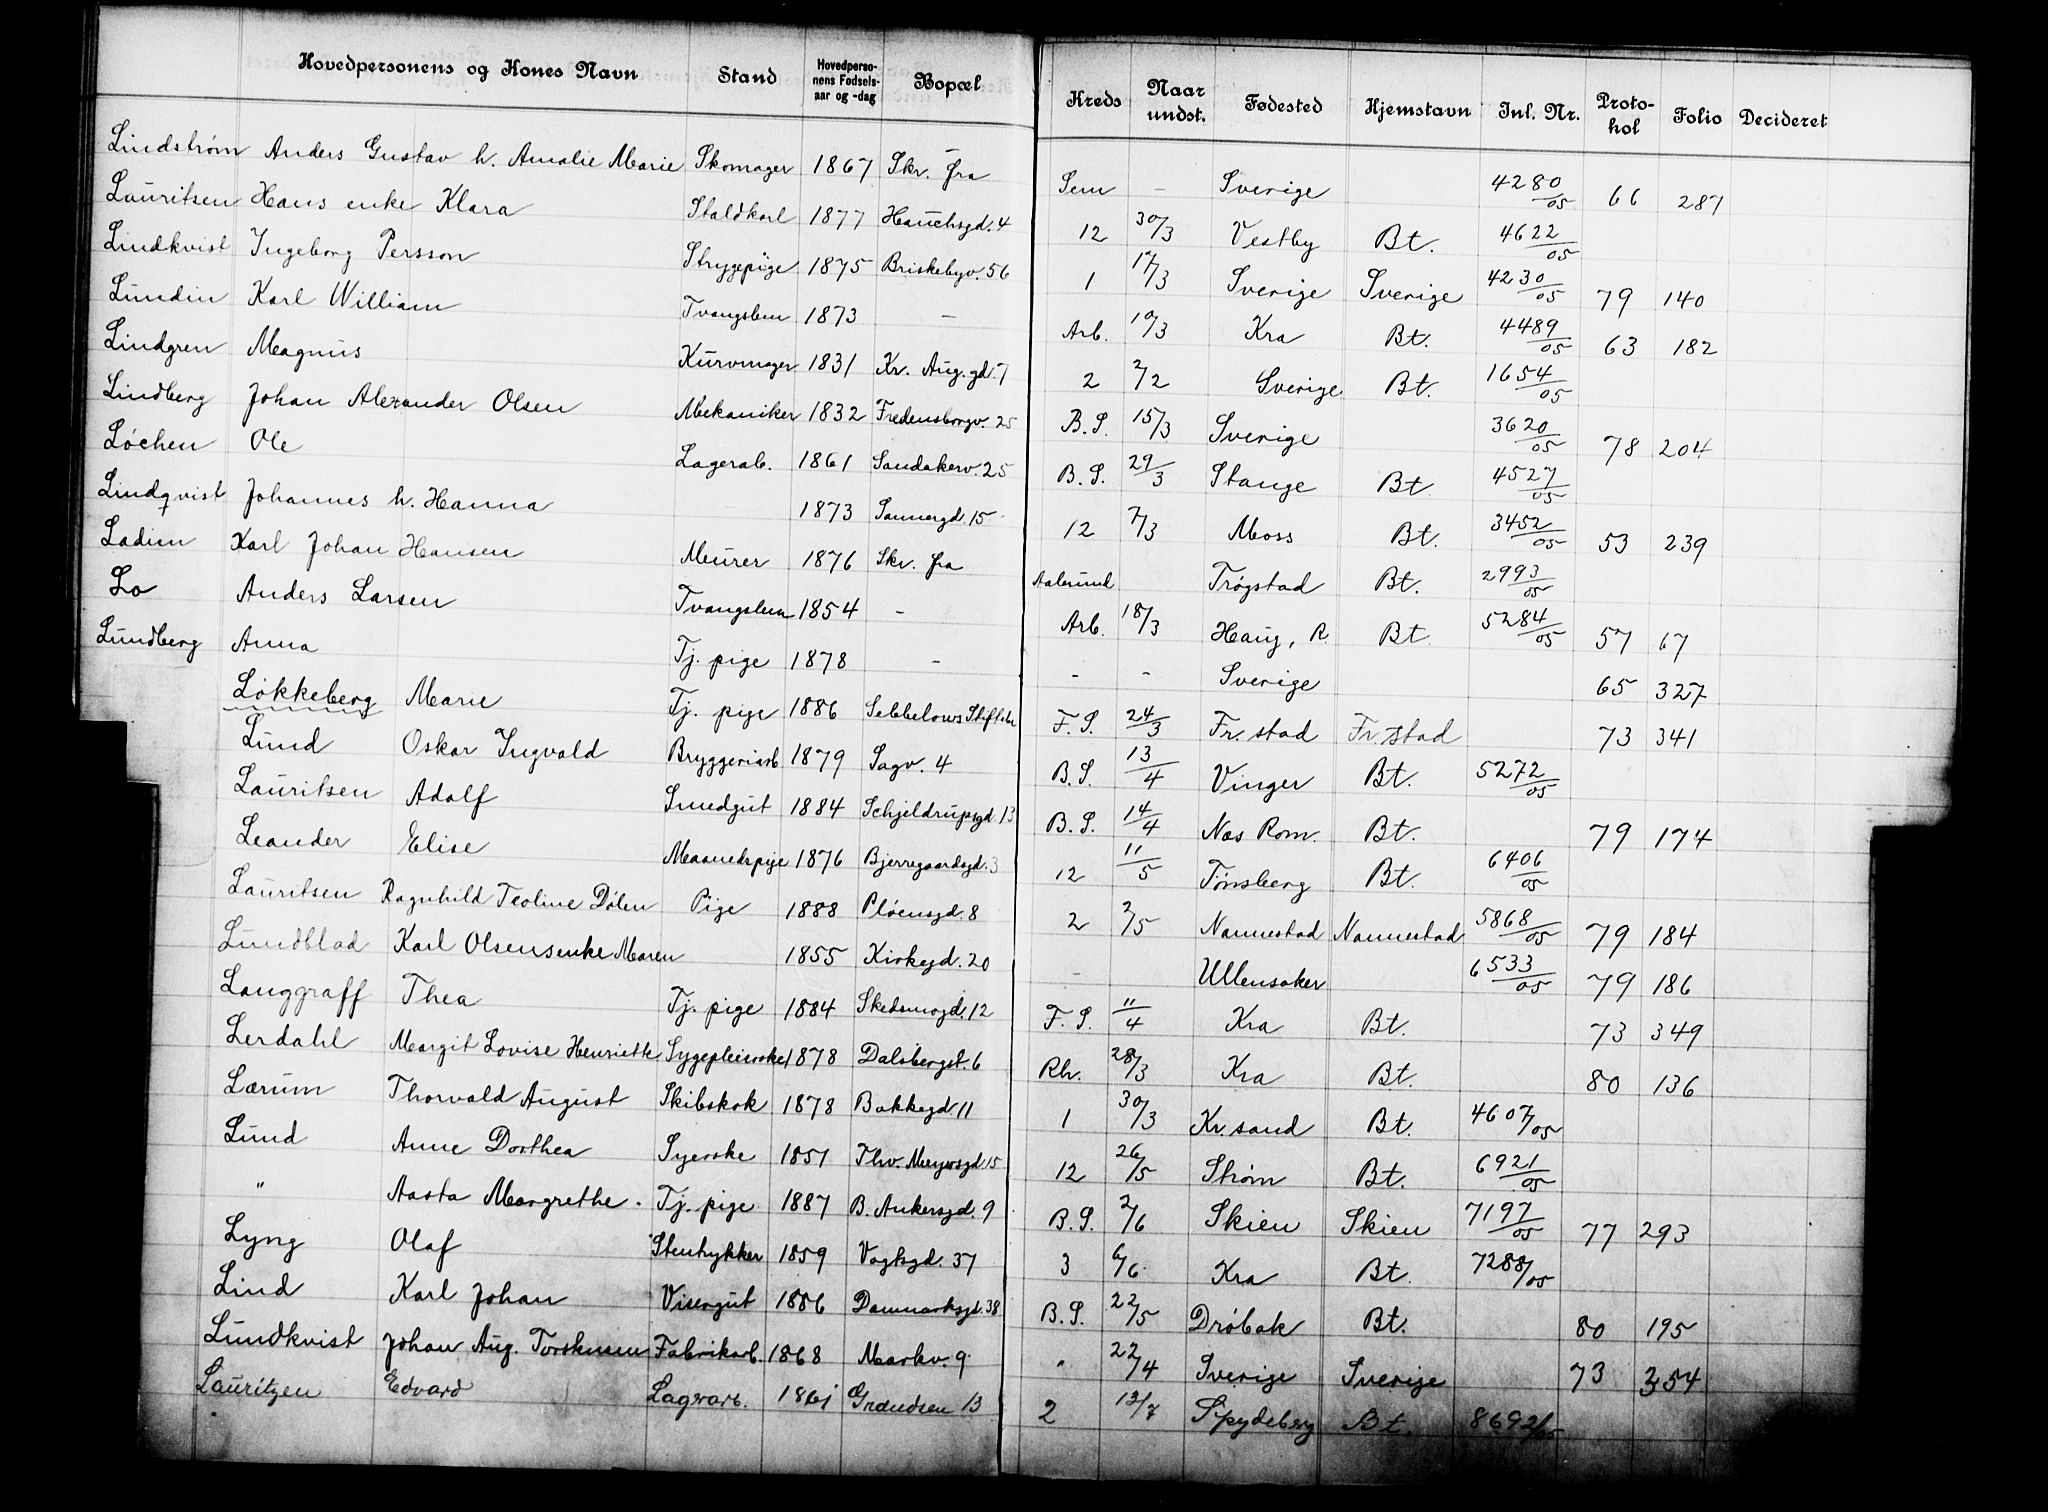 Hovedpersonens og Kones Navn Stand Hovedperso-nens Fødsels-aar og -dag Bopæl Kreds Naar undst. Fødested Hjemstavn Inl. Nr. Proto-kol Folio Decideret
Lindstrøm Anders Gustav h. Amalie Marie Skomager 1867 Skr. fra Sem - Sverige 4280/05 66 287
Lauritsen Hans enke Klara Staldkarl 1877 Hauchsgd. 4 12 30/3 Vestby Bt. 4622/05
Lindkvist Ingeborg Persson Strygepige 1875 Briskebyv. 56 1 17/3 Sverige Sverige 4230/05 79 140
Lundin Karl William Tvangslem 1873 - Arb. 10/3 Kra Bt. 4489/05 63 182
Lindgren Magnus Kurvmager 1831 Kr. Aug. gd. 7 2 2/2 Sverige Bt. 1654/05
Lindberg Johan Alexander Olsen Mekaniker 1832 Fredensborgv. 25 B.S. 15/3 Sverige 3620/05 78 204
Løchen Ole Lagerab. 1861 Sandakerv. 25 B.S. 29/3 Stange Bt. 4527/05
Lindqvist Johannes h. Hanna 1873 Sannergd. 15 12 7/3 Moss Bt. 3452/05 53 239
Ladim Karl Johan Hansen Murer 1876 Skr. fra Aalesund Trøgstad Bt. 2993/05
Lo Anders Larsen Tvangslem 1854 - Arb. 18/3 Haug, R. Bt. 5284/05 57 67
Lundberg Anna Tj. pige 1878 - - - Sverige 65 327
Løkkeberg Marie Tj. pige 1886 Sebbelows Stiftelse F.S. 24/3 Fr. stad Fr. stad 73 341
Lund Oskar Ingvald Bryggeriarb 1879 Sagv. 4 B.S. 13/4 Vinger Bt. 5272/05
Lauritsen Adolf Smedgut 1884 Schjeldrupsgd. 13 B.S. 14/4 Nes Rom. Bt. 79 174
Leander Elise Maanedspige 1876 Bjerregaardsgd. 3 12 11/5 Tønsberg Bt. 6406/05
Lauritsen Ragnhild Teoline Dølen Pige 1888 Pløensgd. 8 2 2/5 Nannestad Nannestad 5868/05 79 184
Lundblad Karl Olsens enke Maren 1855 Kirkegd. 20 - Ullensaker 6533/05 79 186
Langgraff Thea Tj. pige 1884 Skedsmogd. 12 F.S. 11/4 Kra Bt. 73 349
Lerdahl Margit Lovise Henriette Sygepleierske 1878 Dalsbergst. 6 Rh. 28/3 Kra Bt. 80 136
Lærum Thorvald August Skibskok 1878 Bakkegd 11 1 30/3 Kr. sand Bt. 4607/05
Lund Anne Dorthea Syerske 1851 Thv. Meyersgd 15 12 26/5 Strøm Bt. 6921/05
" Aasta Margrethe. Tj. pige 1887 B. Ankersgd. 9 B.S. 2/6 Skien Skien 7197/05 77 293
Lyng Olaf Stentrykker 1859 Vogtsgd. 37 3 6/6 Kra Bt. 7288/05
Lind Karl Johan Visergut 1886 Danmarksgd. 38 B.S. 22/5 Drøbak Bt. 80 195
Lundkvist Johan Aug. Fabrikarb. 1868 Markv. 9 " 22/4 Sverige Sverige 73 354
Lauritzen Edvard Lagerarb. 1861 13 2 12/7 Spydeberg Bt. 8692/05